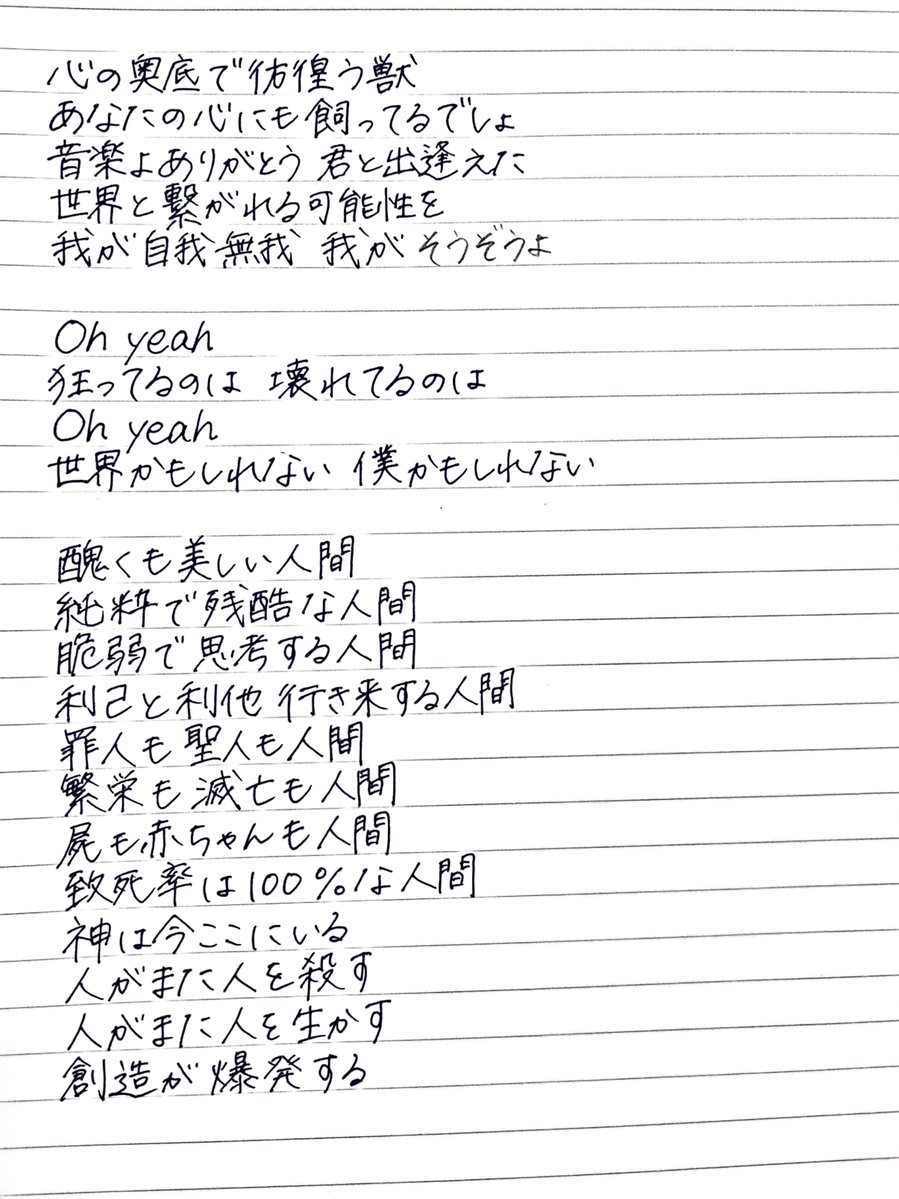 心の奥底で彷徨う獣
あなたの心にも飼ってるでしょ
音楽よありがとう 君と出逢えた
世界と繋がれる可能性を
我が自我無我 我が そうぞうよ
Oh yeah
狂ってるのは 壊れてるのは
Oh yeah
世界かもしれない 僕かもしれない
醜くも美しい人間
純粋で残酷な人間
脆弱で思考する人間
利己と利他 行き来する人間
罪人も聖人も人間
繁栄も滅亡も人間
屍も赤ちゃんも人間
致死率は100%な人間
神は今ここにいる
人がまた人を殺す
人がまた人を生かす
創造が爆発する